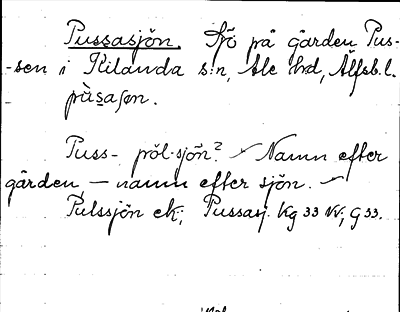 Pussasjön. Sjö på gården Pus-
-sen i Kilanda s:n, Ale hd, Älfsb.l.
pùsasøn.
Puss- pöl-sjön? Namn efter
gården, — namn efter sjön.
Pulssjön ek; Pussasj. Kg 33 NV; G 33.